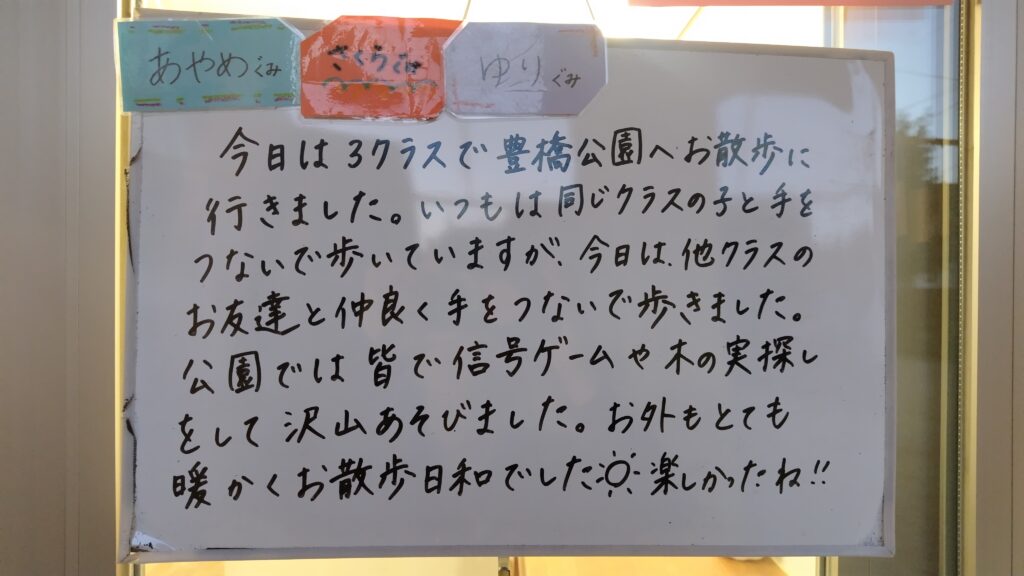 あやめぐみ
さくらぐみ
ゆりぐみ
今日は3クラスで豊橋公園へお散歩に
行きました。いつもは同じクラスの子と手を
つないで歩いていますが、今日は、他クラスの
お友達と仲良く手をつないで歩きました。
公園では皆で信号ゲームや木の実探し
をして沢山あそびました。お外もとても
暖かくお散歩日和でした☼楽しかったね!!